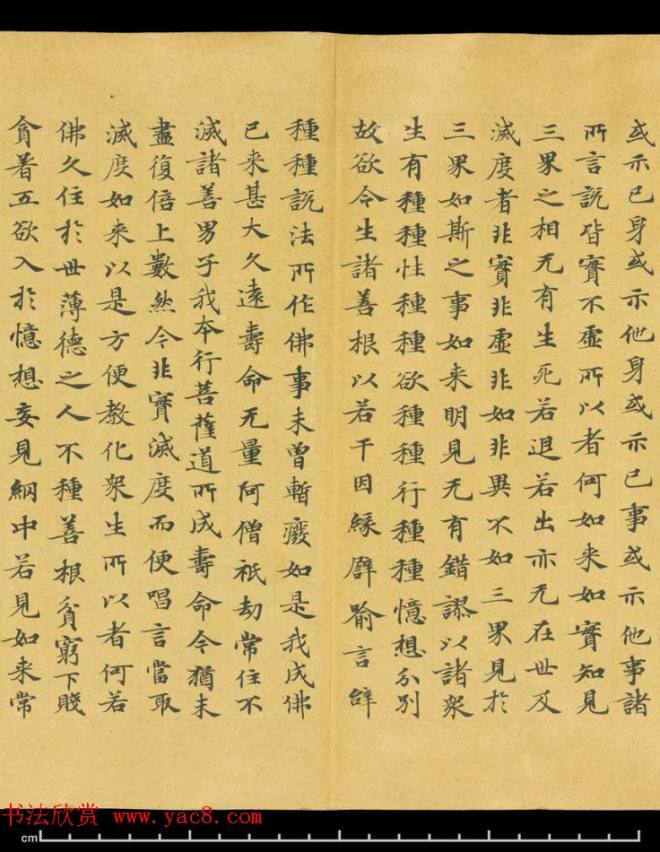 或示已身或示他身或示已事或示他事諸
所言說皆實不虛所以者何如来如實知見
三界之相无有生死若退若出亦无在世及
滅度者非實非虛非如非異不如三界見於
三界如斯之事如来明見无有錯謬以諸衆
生有種種性種種欲種種行種種憶想分別
故欲令生諸善根以若干因緣辟喻言辝
種種說法所作佛事未曾暫廢如是我成佛
已来甚大久遠壽命无量阿僧祇劫常住不
滅諸善男子我本行菩薩道所成壽命今猶未
盡復倍上數然今非實滅度而便唱言當取
滅度如来以是方便教化衆生所以者何若
佛久住於世薄德之人不種善根貧窮下賤
貪著五欲入於憶想妄見網中若見如来常
书法欣赏 www.yac8.com
cm